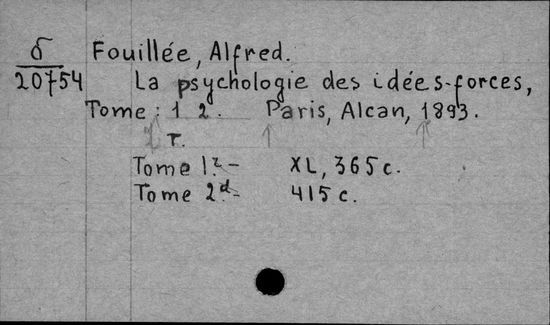 б Fouillée, Alfred.
20754 La psychologie des idées-forces,
Tome: 1 2. Paris, Alcan, 1893.
2 т.
Tome 1r- XL, 365 c.
Tome 2d- 415 c.